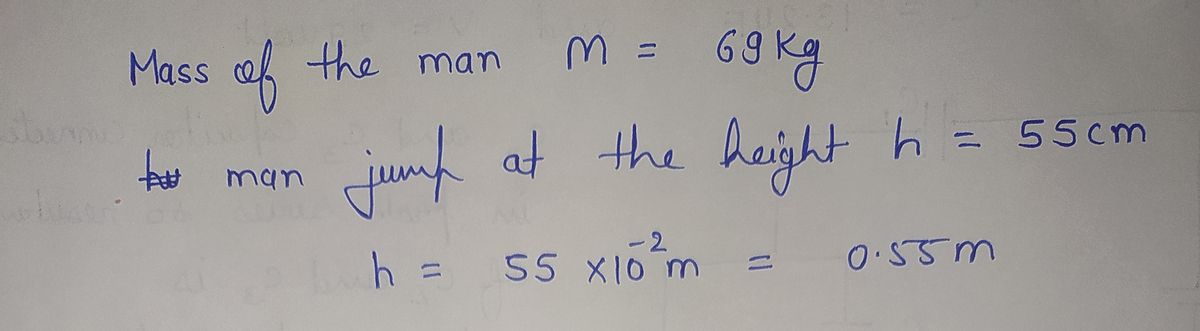 Mass of the man m = 69 kg
man jump at the height h = 55cm
h = 55 x10⁻²m = 0.55m